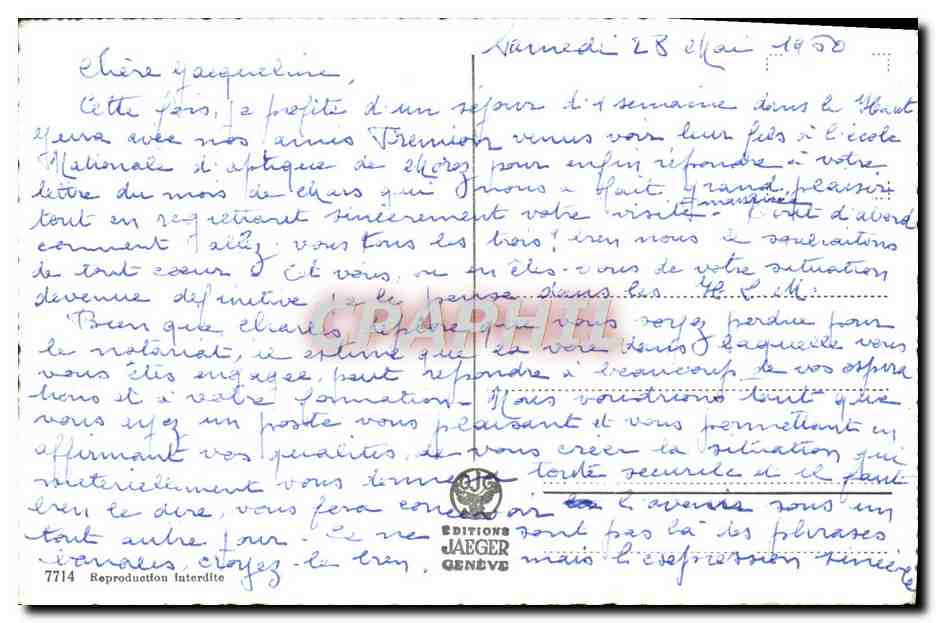 Samedi 28 Mai 1960
Chère Jacqueline,
Cette fois, je profite d'un séjour d'1 semaine dans le Haut
Jura avec nos amis venus voir leur fils à l'école
Nationale d'optique de Morez pour enfin répondre à votre
lettre du mois de Mars qui nous a fait grand plaisir
tout en regrettant sincèrement votre visite manquée - Tout d'abord
comment allez-vous tous les trois? bien nous le souhaitons
de tout coeur. Et vous, où en êtes-vous de votre situation
devenue définitive je le pense dans les H L M.
Bien que Charles déplore que vous soyez perdue pour
le notariat, il estime que la voie dans laquelle vous
vous êtes engagée, peut répondre à beaucoup de vos aspira
tions et à votre formation - Nous voudrions tant que
vous ayez un poste vous plaisant et vous permettant en
affirmant vos qualités, de vous créer la situation qui
matériellement vous donnera toute sécurité et il faut
bien le dire, vous fera concevoir l'avenir sous un
tout autre jour. Ce ne sont pas là des phrases
banales, croyez-le bien, mais l'expression sincère
CPAPHIL
EDITIONS
JAEGER
GENÈVE
7714 Reproduction interdite